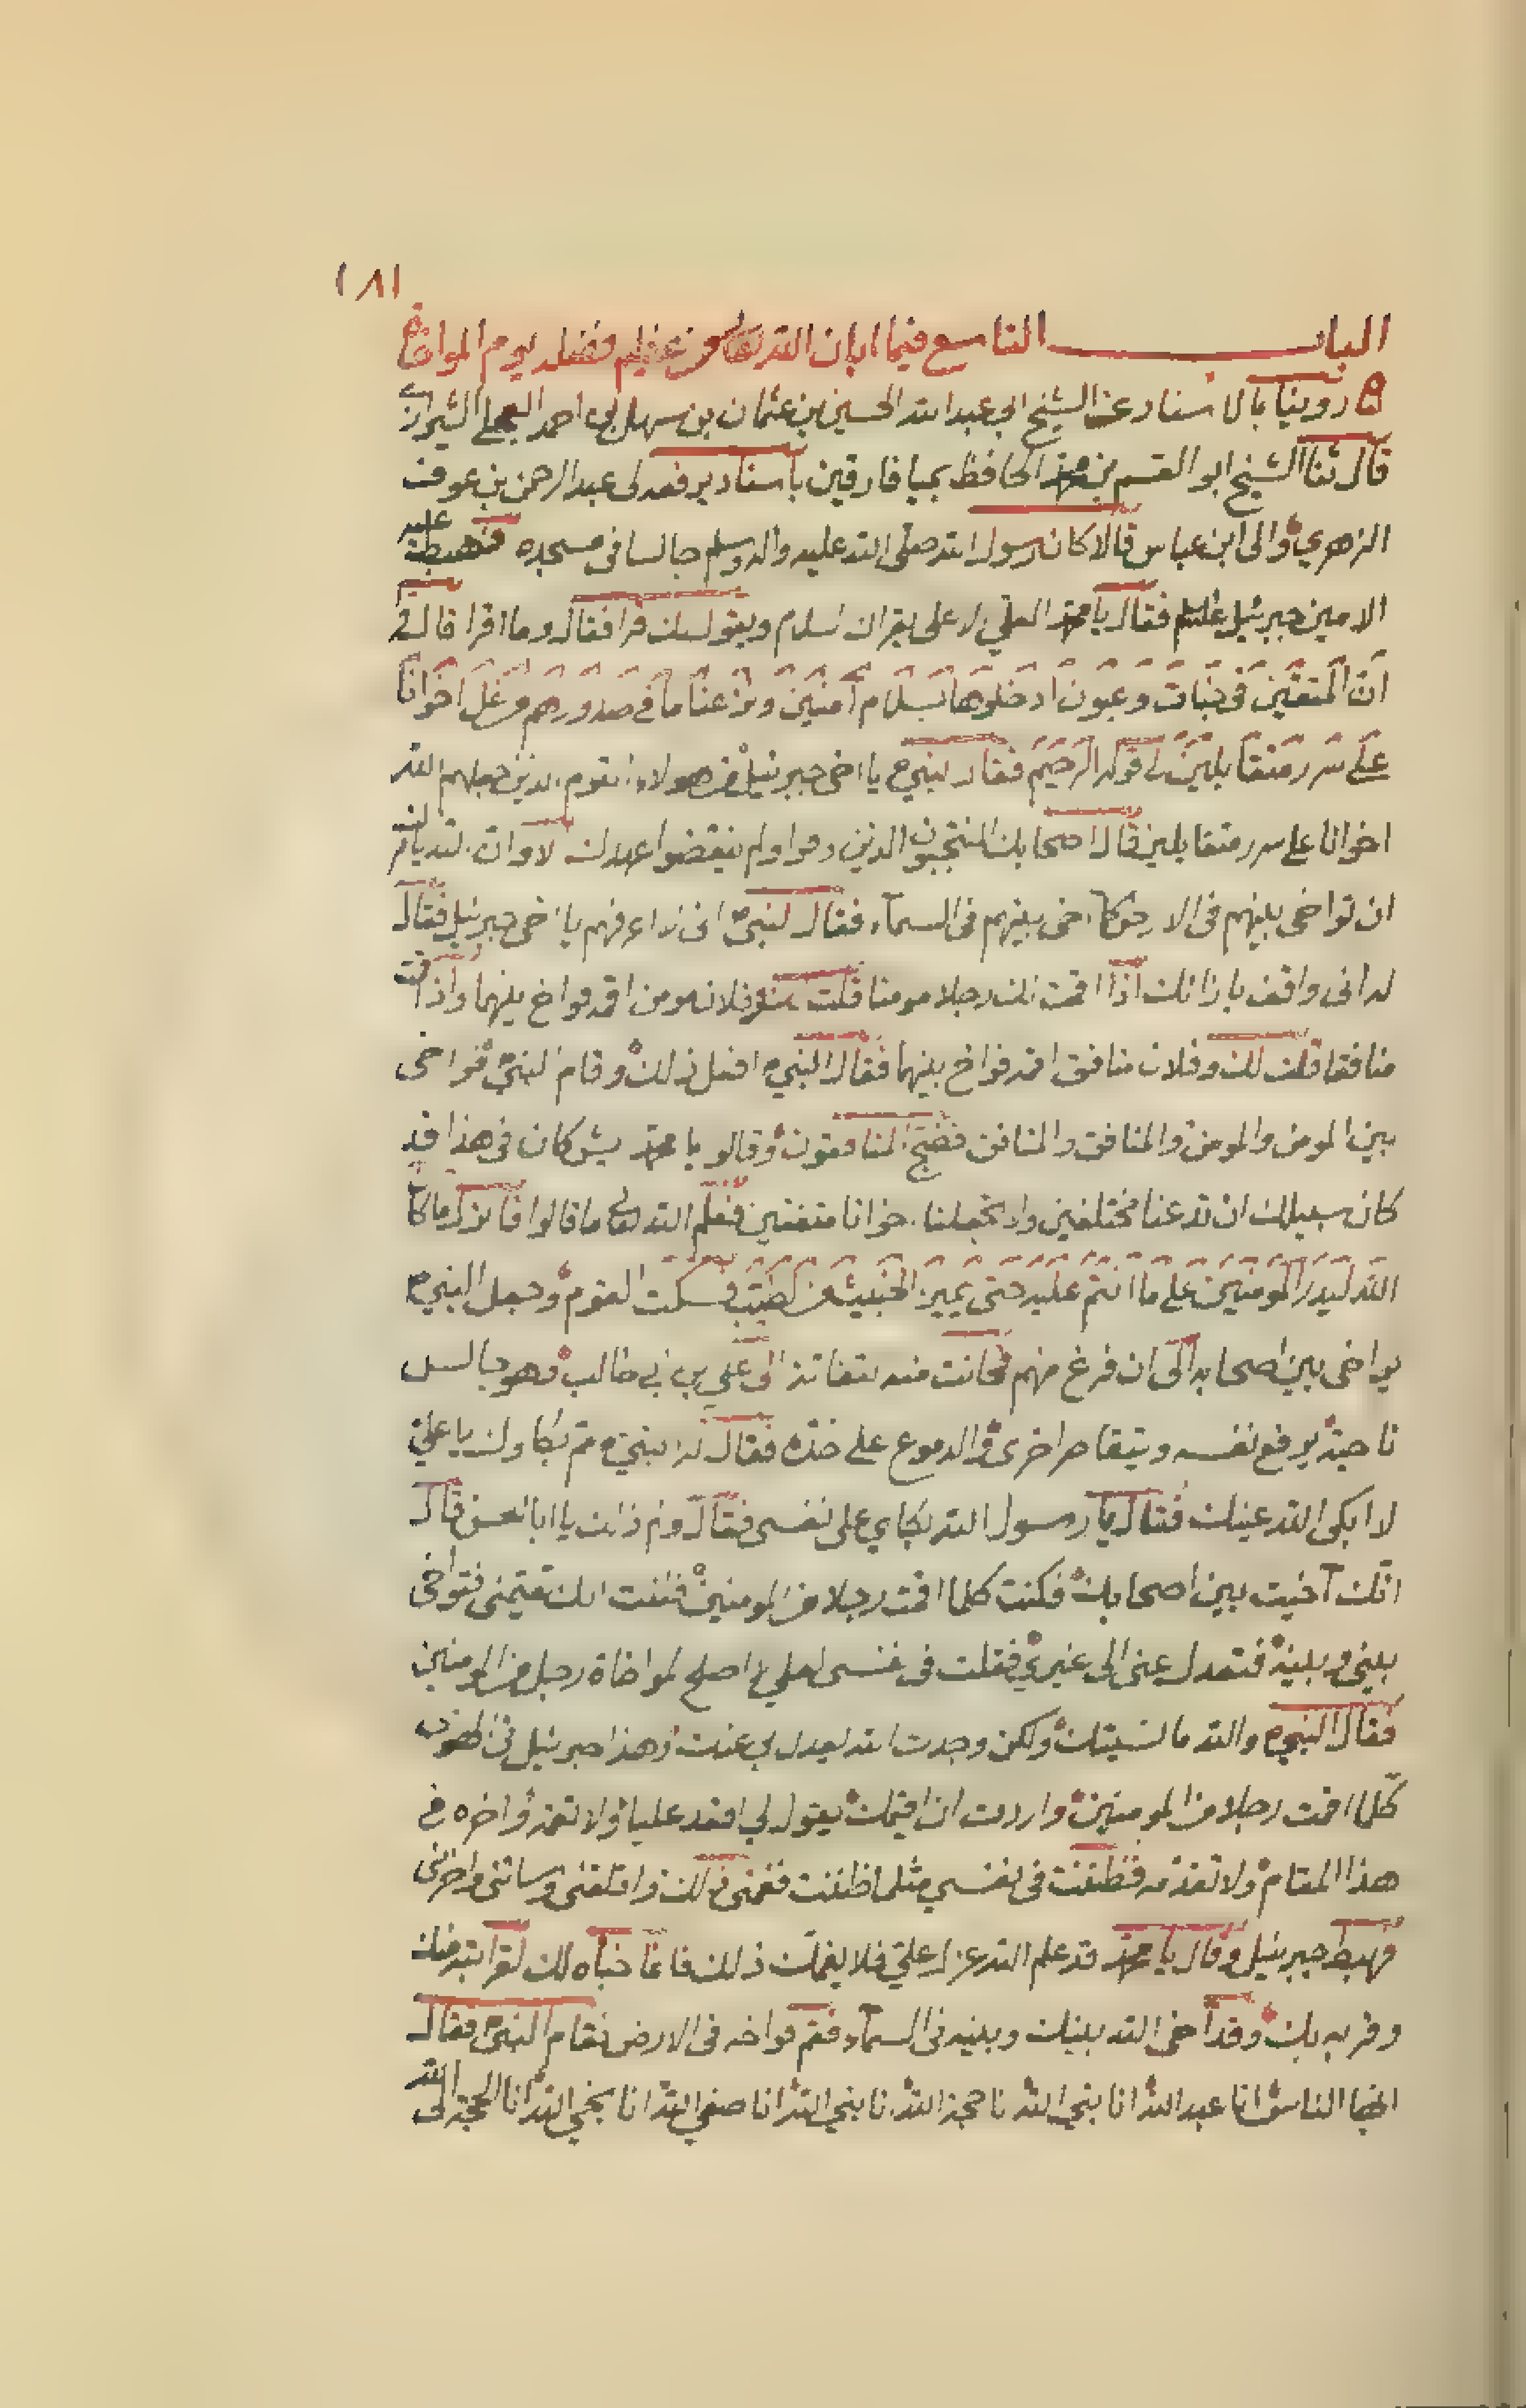 ١٨١
الباب التاسع فيما ابان الله تعالى من عظيم فضله يوم المواخاة
روينا بالاسناد عن الشيخ ابي عبد الله الحسين بن عثمان بن سهل بن احمد العجلي الشيرازي
قال ثنا الشيخ ابو القسم بن محمد الحافظ بميافارقين باسناد يرفعه الى عبد الرحمن بن عوف
الزهري والى ابن عباس قالا كان رسول الله صلى الله عليه واله وسلم جالسا في مسجده فهبط عليه
الامين جبرئيل فقال يا محمد العلي الاعلى يقرئك السلام ويقول لك اقرا فقال وما اقرا قال
ان المتقين في جنات وعيون ادخلوها بسلام آمنين ونزعنا ما في صدورهم من غل اخوانا
على سرر متقابلين الى قوله الرحيم فقال النبي ص يا اخى جبرئيل من هولاء القوم الذين جعلهم الله
اخوانا على سرر متقابلين قال اصحابك المنتجبون الذين وفوا ولم ينقضوا عهدك الا وان الله يامرك
ان تواخى بينهم في الارض كما اخى بينهم في السماء فقال النبي ص انى لا اعرفهم يا اخى جبرئيل فقال
له انى واقف بازائك اذا اقمت لك رجلا مومنا قلت لك وفلان مومن اقمه فواخ بينهما واذا اقمت
منافقا قلت لك وفلان منافق اقمه فواخ بينهما فقال النبي ص افعل ذلك وقام النبي فواخى
بين المومن والمومن والمنافق والمنافق فضج المنافقون وقالو يا محمد يش كان في هذا قد
كان سبيلك ان تدعنا مختلفين ولا تجعلنا اخوانا متفقين فعلم الله تعالى ما قالوا فانزل ما كان
الله ليذر المومنين على ما انتم عليه حتى يميز الخبيث من الطيب فسكت القوم وجعل النبي ص
يواخى بين اصحابه الى ان فرغ منهم فحانت منه التفاتة الى علي بن ابي طالب وهو جالس
ناحية يرفع نفسه ويتقاصر اخرى والدموع على خده فقال له النبي ص مم بكاوك يا علي
لا ابكى الله عينك فقال يا رسول الله بكاي على نفسى فقال ولم ذلك يا ابا الحسن قال
انك آخيت بين اصحابك فكنت كلما اقمت رجلا من المومنين ظننت انك تقيمنى فتواخى
بينى وبينه فتعدل عنى الى غيري فقلت في نفسى لعلي لا اصلح لمواخاة رجل من المومنين
فقال النبي ص والله ما نسيتك ولكن وجدت الله يعدل بي عنك وهذا جبرئيل
كلما اقمت رجلا من المومنين واردت ان اقيمك يقول لي اقعد عليا ولا تقمه واخره في
هذا المقام ولا تقدمه فظننت في نفسي مثل ما ظننت فغمنى ذلك واقلقنى وساءنى واحزننى
فهبط جبرئيل وقال يا محمد قد علم الله عزل علي فلا يغمك ذلك فانما خباه لك لقرابته منك
وقربه بك وقد آخى الله بينك وبينه في السماء فقم فواخه في الارض فقام النبي ص فقال
ايها الناس انا عبد الله انا نبي الله انا حجة الله انا نبي الله انا صفي الله انا نجي الله انا الحجة الى الله